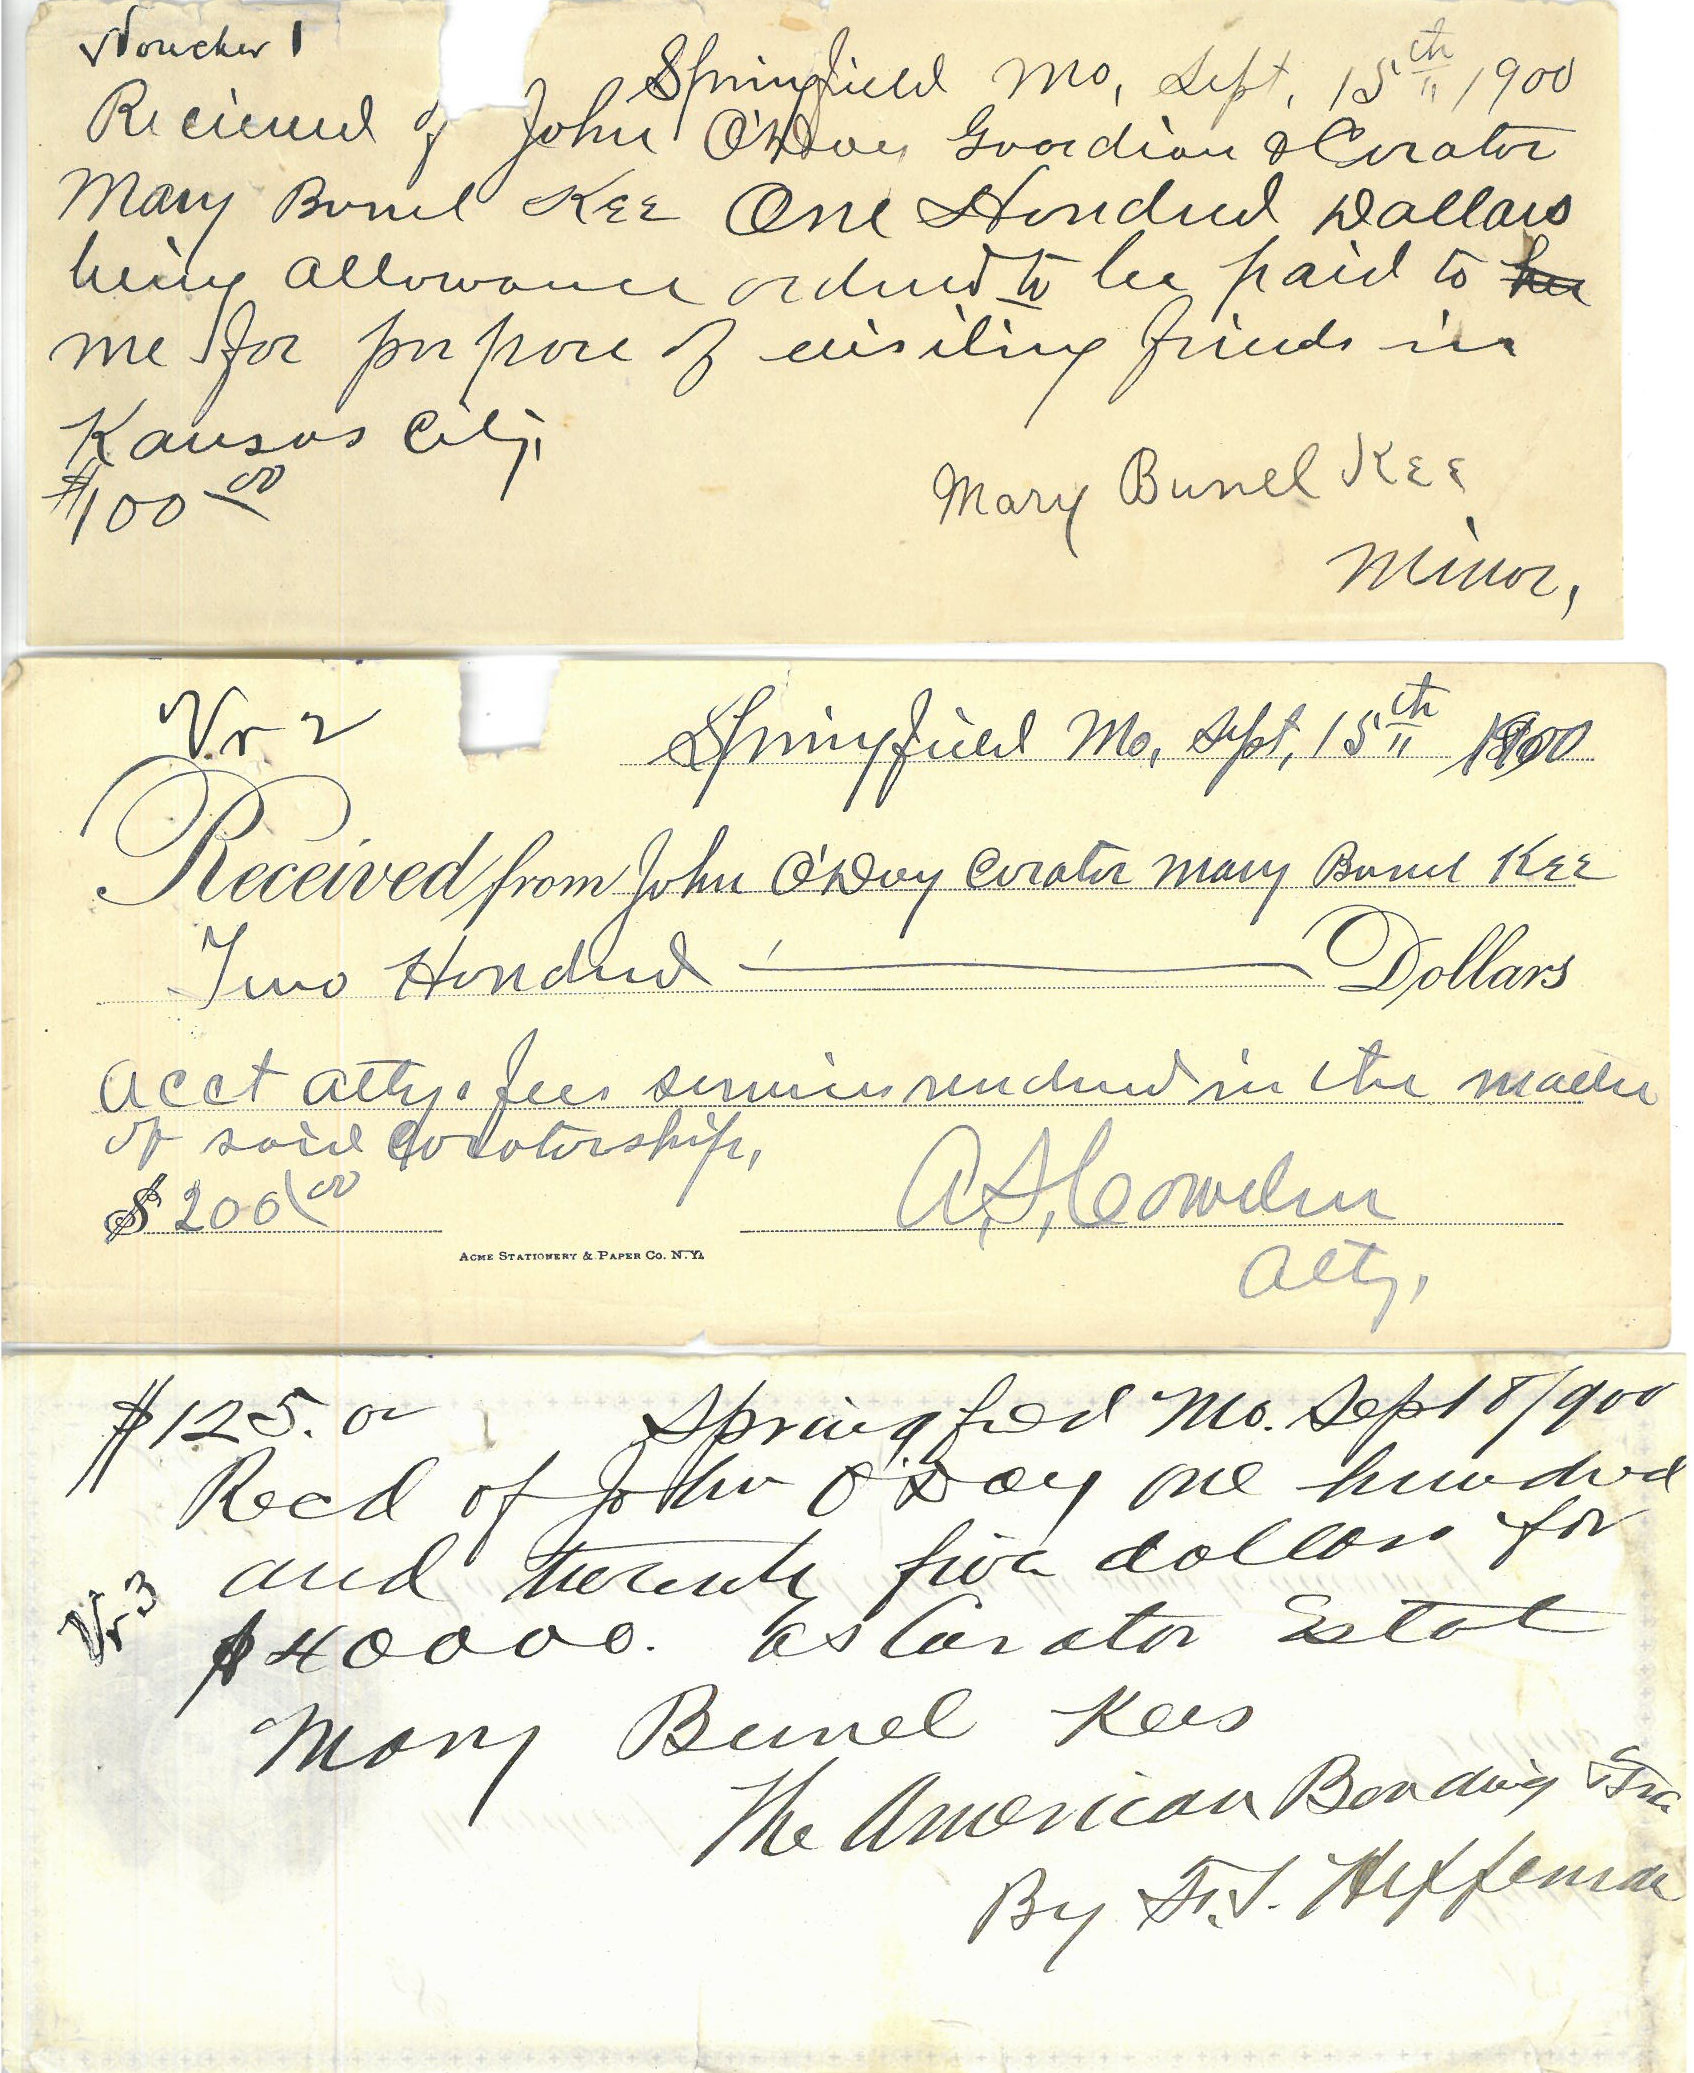 Voucher 1
Springfield Mo, Sept, 15th 1900
Recieved of John O'Day Guardian & Curator
Mary Bunel Kee One Hundred Dollars
being allowance ordered to be paid to her
me for purpose of visiting friends in
Kansas City,
$100 00
Mary Bunel Kee
Minor,
Vr 2
Springfield Mo, Sept, 15th 1900
Received from John O'Day Curator Mary Bunel Kee
Two Hundred Dollars
acct atty. fees services rendered in the matter
of said Curatorship,
$ 200 00
A, S, Cowden
Atty,
ACME STATIONERY & PAPER CO. N.Y.
$125. 00 Springfied Mo. Sept 18/900
Recd of John O'Day one hundred
and twenty five dollars for
Vr 3
$40000. as Curator Estat
Mary Bunel Kees
The American Bonding & Tru
By F. J. Heffernan